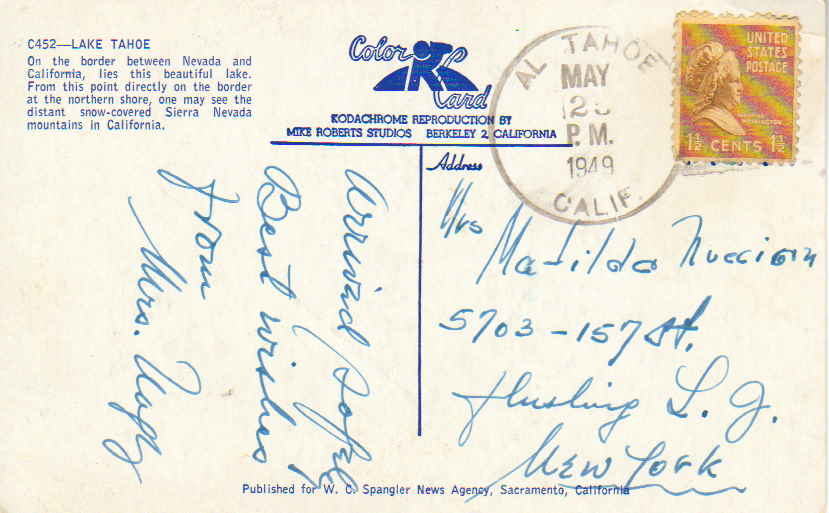 C452—LAKE TAHOE
On the border between Nevada and
California, lies this beautiful lake.
From this point directly on the border
at the northern shore, one may see the
distant snow-covered Sierra Nevada
mountains in California.
Color
Card
KODACHROME REPRODUCTION BY
MIKE ROBERTS STUDIOS BERKELEY 2, CALIFORNIA
AL TAHOE
MAY
P.M.
1949
CALIF.
UNITED
STATES
POSTAGE
WASHINGTON
1½ CENTS 1½
Arrived Safely
Best wishes
from
Mrs.
Address
Mrs
Matilda
5703-157 St.
Flushing L. I.
New York
Published for W. C. Spangler News Agency, Sacramento, California